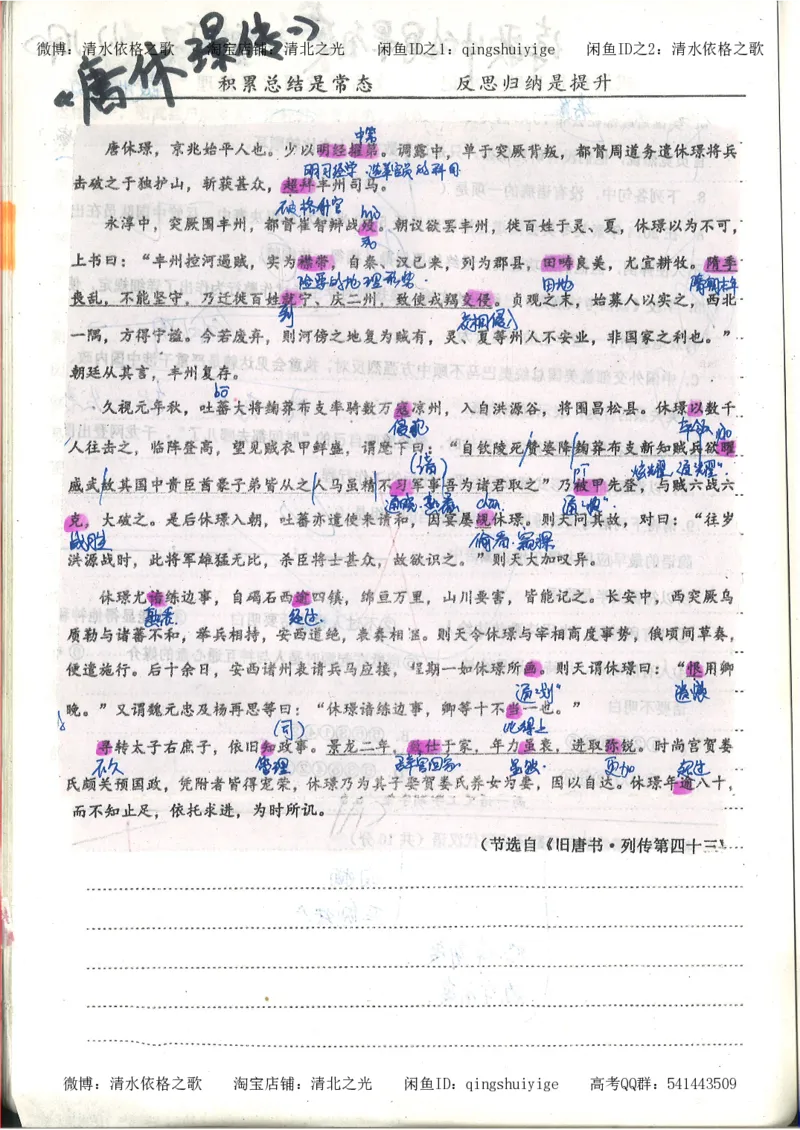 微博：清水依格之歌 淘宝店铺：清北之光 闲鱼ID之1：qingshuiyige 闲鱼ID之2：清水依格之歌
《唐休璟传》
积累总结是常态 反思归纳是提升
中第
唐休璟，京兆始平人也。少以明经擢第。调露中，单于突厥背叛，都督周道务遣休璟将兵
明习经学 选举官员的科目
击破之于独护山，斩获甚众，超拜丰州司马。
破格升官
永淳中，突厥围丰州，都督崔智辩战殁。朝议欲罢丰州，徙百姓于灵、夏，休璟以为不可，
为
上书曰：“丰州控河遏贼，实为襟带，自秦、汉已来，列为郡县，田畴良美，尤宜耕牧。隋季
险要的地理形势 田地 隋朝末年
丧乱，不能坚守，乃迁徙百姓就宁、庆二州，致使戎羯交侵。贞观之末，始募人以实之，西北
到 交相侵入
一隅，方得宁谧。今若废弃，则河傍之地复为贼有，灵、夏等州人不安业，非国家之利也。”
朝廷从其言，丰州复存。
久视元年秋，吐蕃大将麹莽布支率骑数万寇凉州，入自洪源谷，将围昌松县。休璟以数千
侵犯 率领
人往击之，临阵登高，望见贼衣甲鲜盛，谓麾下曰：“自钦陵死赞婆降麹莽布支新知贼兵欲曜
炫耀，通“耀”
威武故其国中贵臣酋豪子弟皆从之人马虽精不习军事吾为诸君取之”乃被甲先登，与贼六战六
通“披”
克，大破之。是后休璟入朝，吐蕃亦遣使来请和，因宴屡觇休璟。则天问其故，对曰：“往岁
战胜 偷看、窥探
洪源战时，此将军雄猛无比，杀臣将士甚众，故欲识之。”则天大加叹异。
休璟尤谙练边事，自碣石西逾四镇，绵亘万里，山川要害，皆能记之。长安中，西突厥乌
熟悉 经过
质勒与诸蕃不和，举兵相持，安西道绝，表奏相继。则天令休璟与宰相商度事势，俄顷间草奏，
便遣施行。后十余日，安西诸州表请兵马应接，程期一如休璟所画。则天谓休璟曰：“恨用卿
通“划” 遗憾
晚。”又谓魏元忠及杨再思等曰：“休璟谙练边事，卿等十不当一也。”
（司） 比得上
寻转太子右庶子，依旧知政事。景龙二年，致仕于家，年力虽衰，进取弥锐。时尚宫贺娄
不久 管理 辞官回家 虽然 更加 超过
氏颇关预国政，凭附者皆得宠荣，休璟乃为其子娶贺娄氏养女为妻，因以自达。休璟年逾八十，
而不知止足，依托求进，为时所讥。
（节选自《旧唐书·列传第四十三》
微博：清水依格之歌 淘宝店铺：清北之光 闲鱼ID：qingshuiyige 高考QQ群：541443509